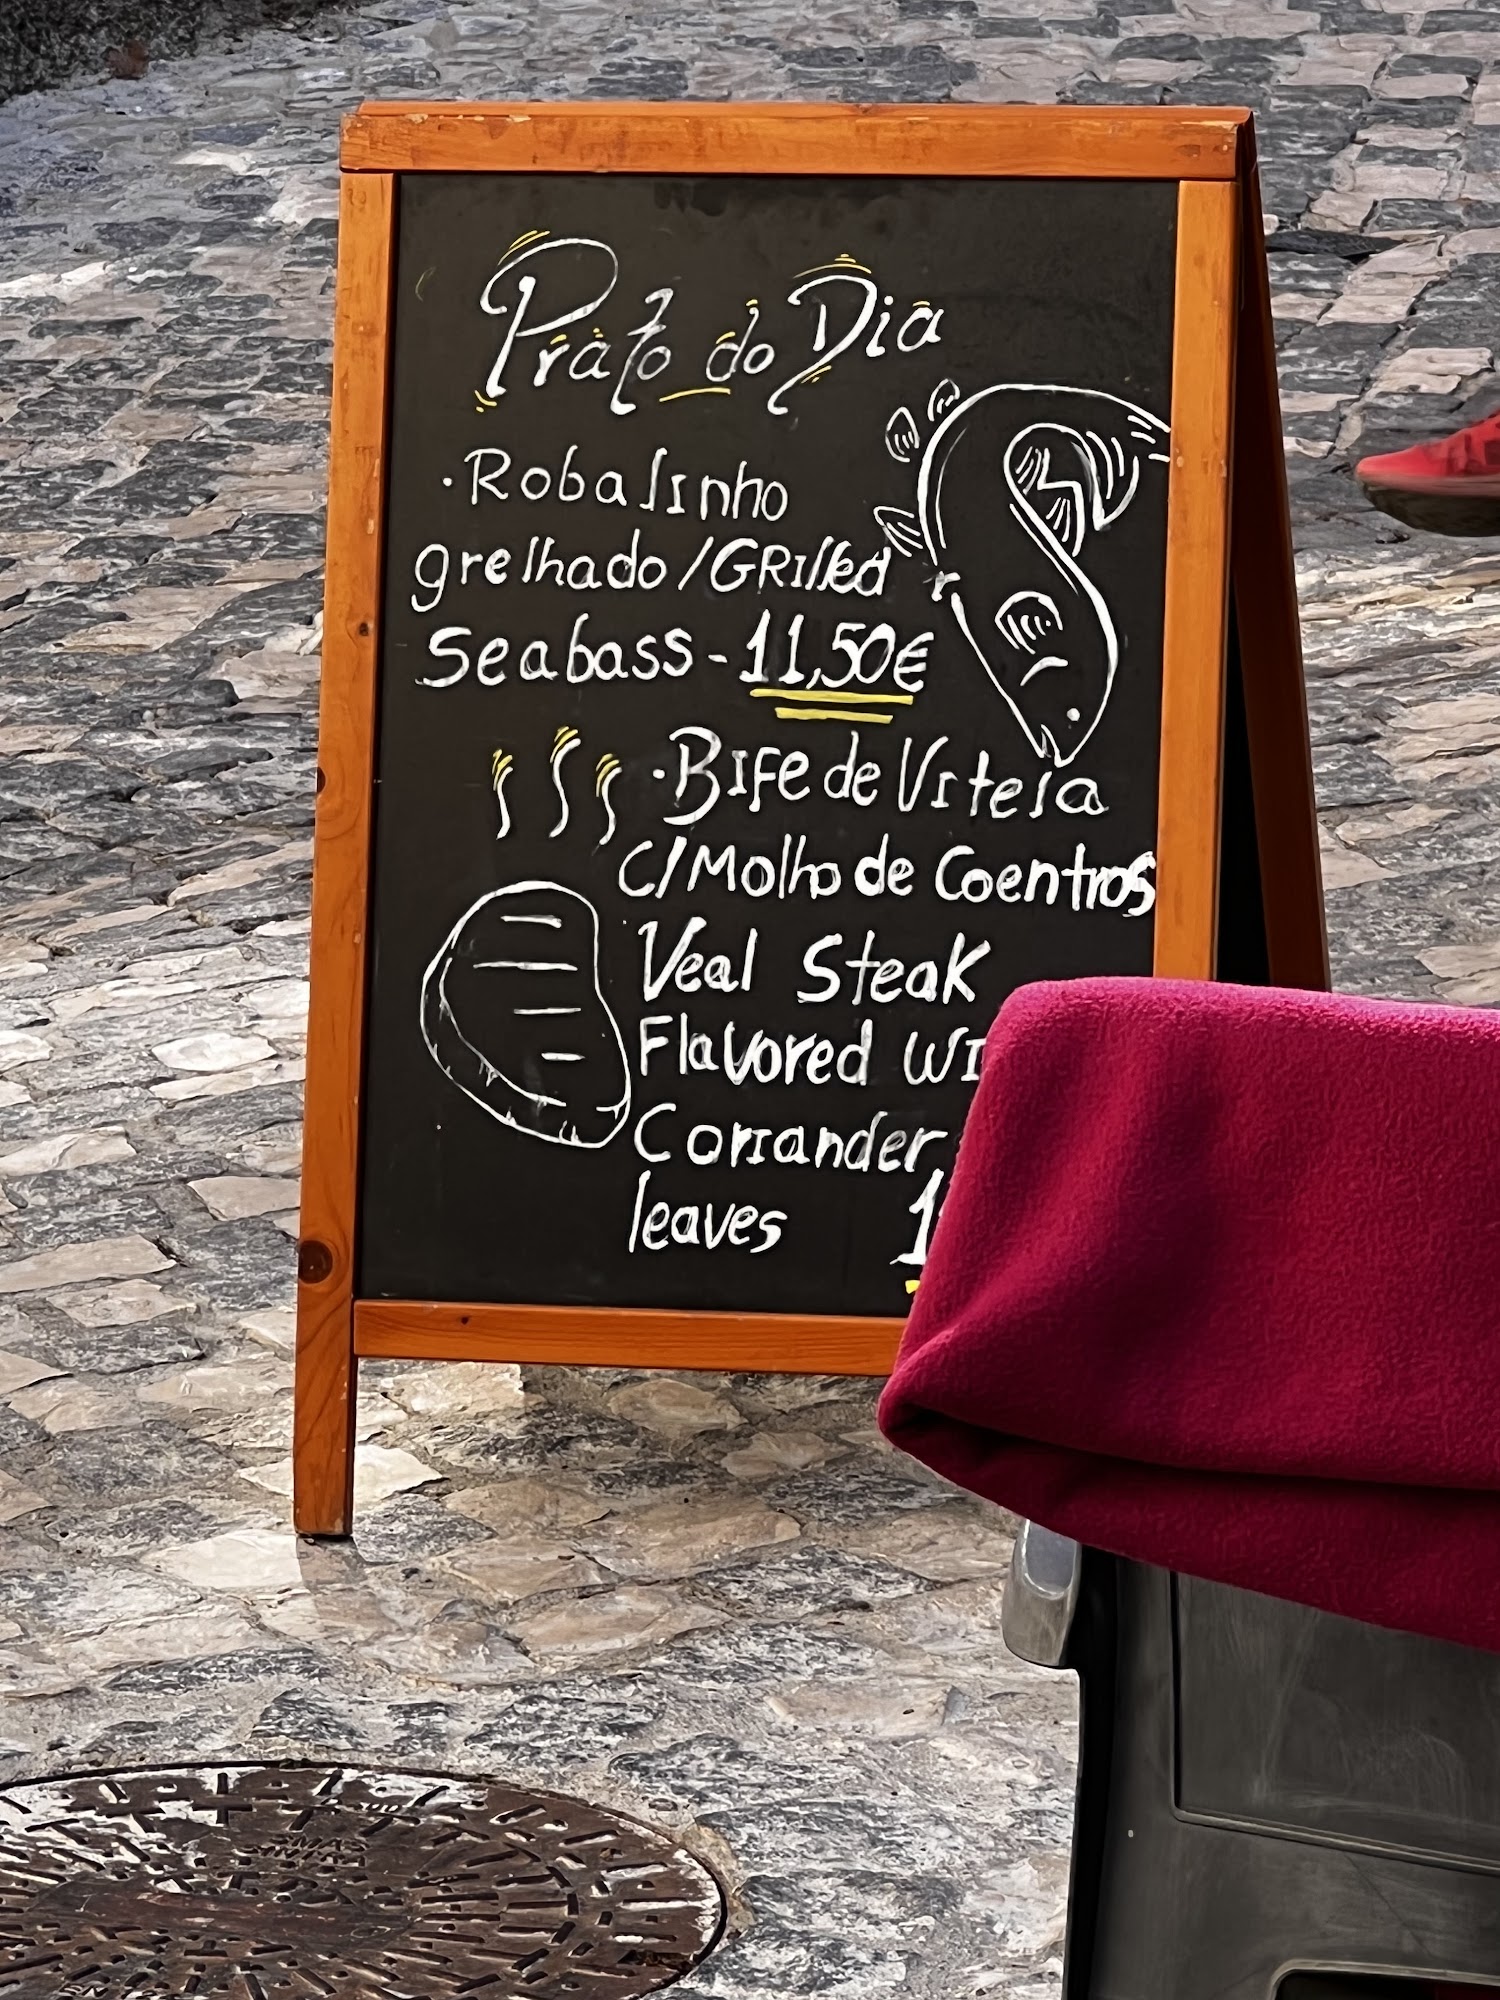 Prato do Dia
·Robalinho
grelhado/GRilled
Seabass-11,50€
·Bife de Vitela
C/Molho de Coentros
Veal Steak
Flavored
Coriander
leaves